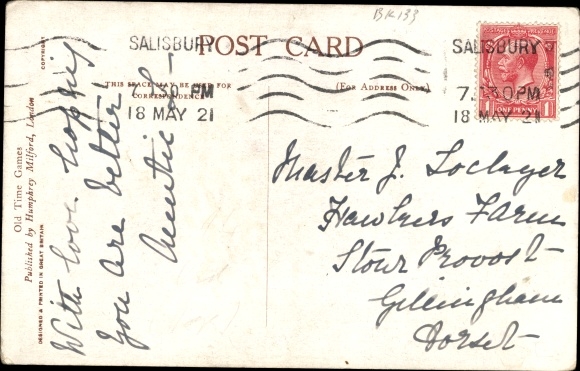 BK133
POST CARD
COPYRIGHT
THIS SPACE MAY BE USED FOR
CORRESPONDENCE
(For Address Only)
SALISBURY
7.30 PM
18 MAY 21
SALISBURY
7.30 PM
18 MAY 21
POSTAGE REVENUE
1 1
ONE PENNY
With love hoping
you are better
Auntie
Master J.
Hawkers Farm
Stour Provost
Gillingham
Dorset
Old Time Games
Published by Humphrey Milford, London
DESIGNED & PRINTED IN GREAT BRITAIN